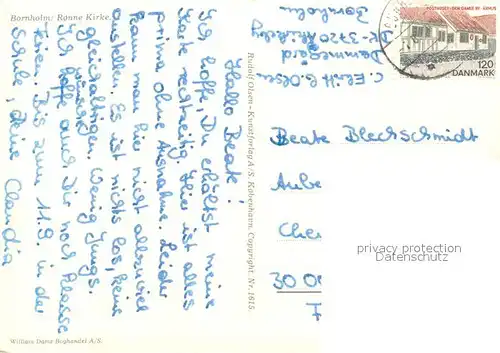 Bornholm: Rønne Kirke.
Hallo Beate!
Ich hoffe, Du erhältst meine
Karte rechtzeitig. Hier ist alles
prima ohne Ausnahme. Leider
kann man hier nicht allzuviel
anstellen. Es ist nichts los, keine
gleichaltrigen. Wenig Jungs.
Ich hoffe auch Dir noch klasse
Ferien. Bis zum 11.9. in der
Schule, Deine Claudia
William Dams Boghandel A/S.
Rudolf Olsen - Kunstforlag A/S. København. Copyright. Nr. 1615.
C. Olsen
Dammegård
DK-3720 Aakirkeby
Bornholm
POSTHUSET I DEN GAMLE BY - ÅRHUS
120
DANMARK
Beate Blechschmidt
30
privacy protection
Datenschutz